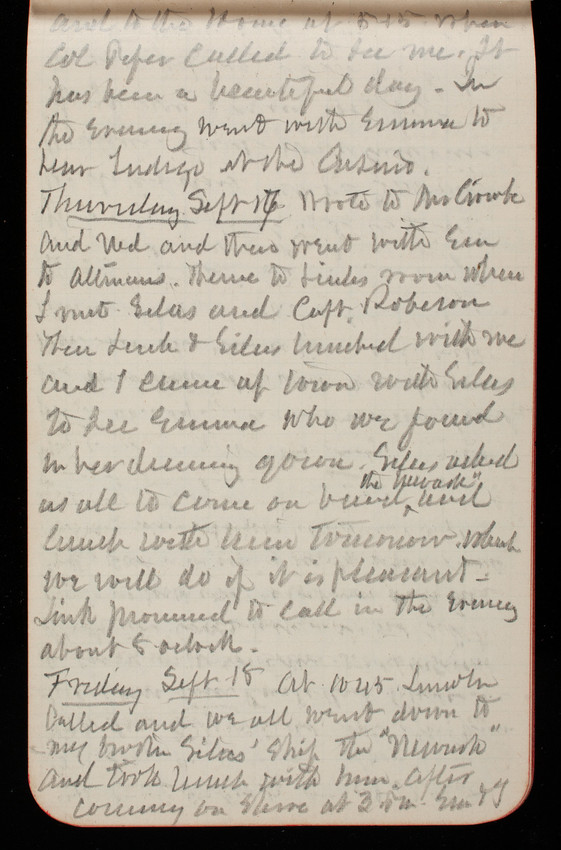 and to the House at 5 15 when
Col Piper called to see me. It
has been a beautiful day - In
the Evening went with Emma to
hear Indigo at the Casino.
Thursday Sept 17 Wrote to McCrooke
and Ned and then went with Em
to Altmans. Thence to Links room when
I met Silas and Capt. Roberson
Then Link & Silas lunched with me
and I came up town with Silas
to see Emma who we found
in her dressing gown. Silas asked
us all to come on board the Newark" and
lunch with him tomorrow which
we will do if it is pleasant -
Link promised to call in the Evening
about 8 oclock.
Friday Sept. 18 At 10 45 Lincoln
Called and we all went down to
my brother Silas' Ship the "Newark"
and took lunch with him. After
coming on shore at 3 Pm Em & I